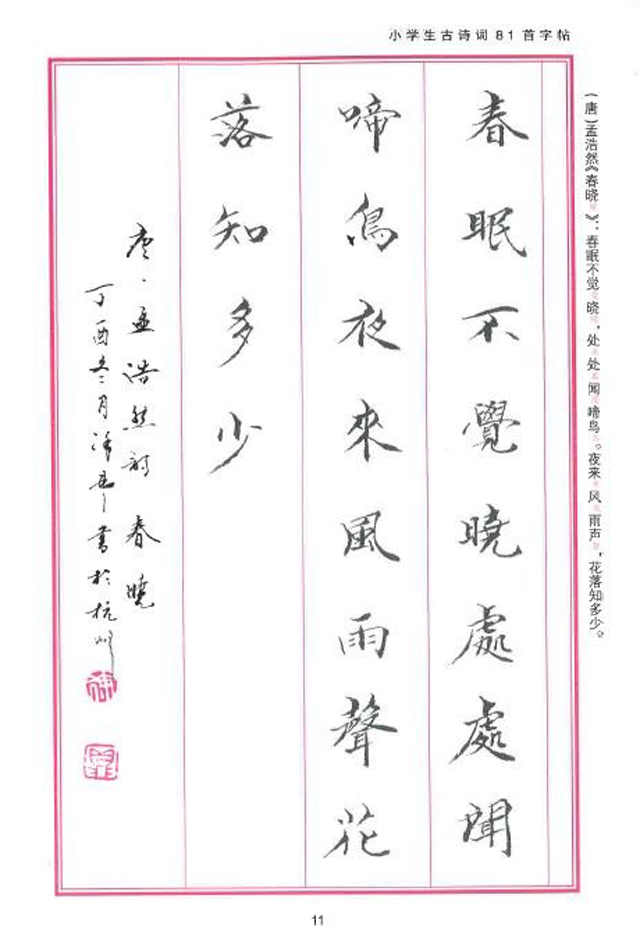 小学生古诗词81首字帖
(唐)孟浩然《春晓》：春眠不觉晓，处处闻啼鸟。夜来风雨声，花落知多少。
春眠不覺曉處處聞
啼鳥夜來風雨聲花
落知多少
唐·孟浩然詩 春曉
丁酉冬月 書於杭州
11